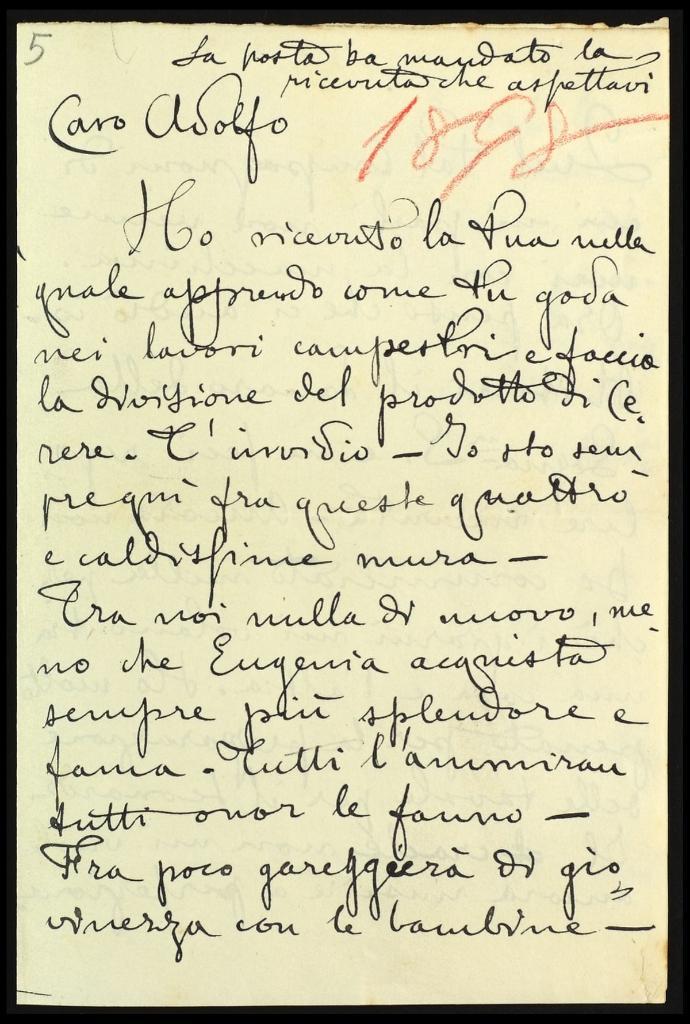 5
La posta ha mandato la
ricevuta che aspettavi
Caro Adolfo
1898
Ho ricevuto la tua nella
quale apprendo come tu goda
nei lavori campestri e faccia
la divisione del prodotto di Ce-
rere. T'invidio — Io sto sem
pre qui fra queste quattro
e caldissime mura —
Tra noi nulla di nuovo, me-
no che Eugenia acquista
sempre più splendore e
fama. Tutti l'ammiran
tutti onor le fanno —
Fra poco gareggierà di gio-
vinezza con le bambine —